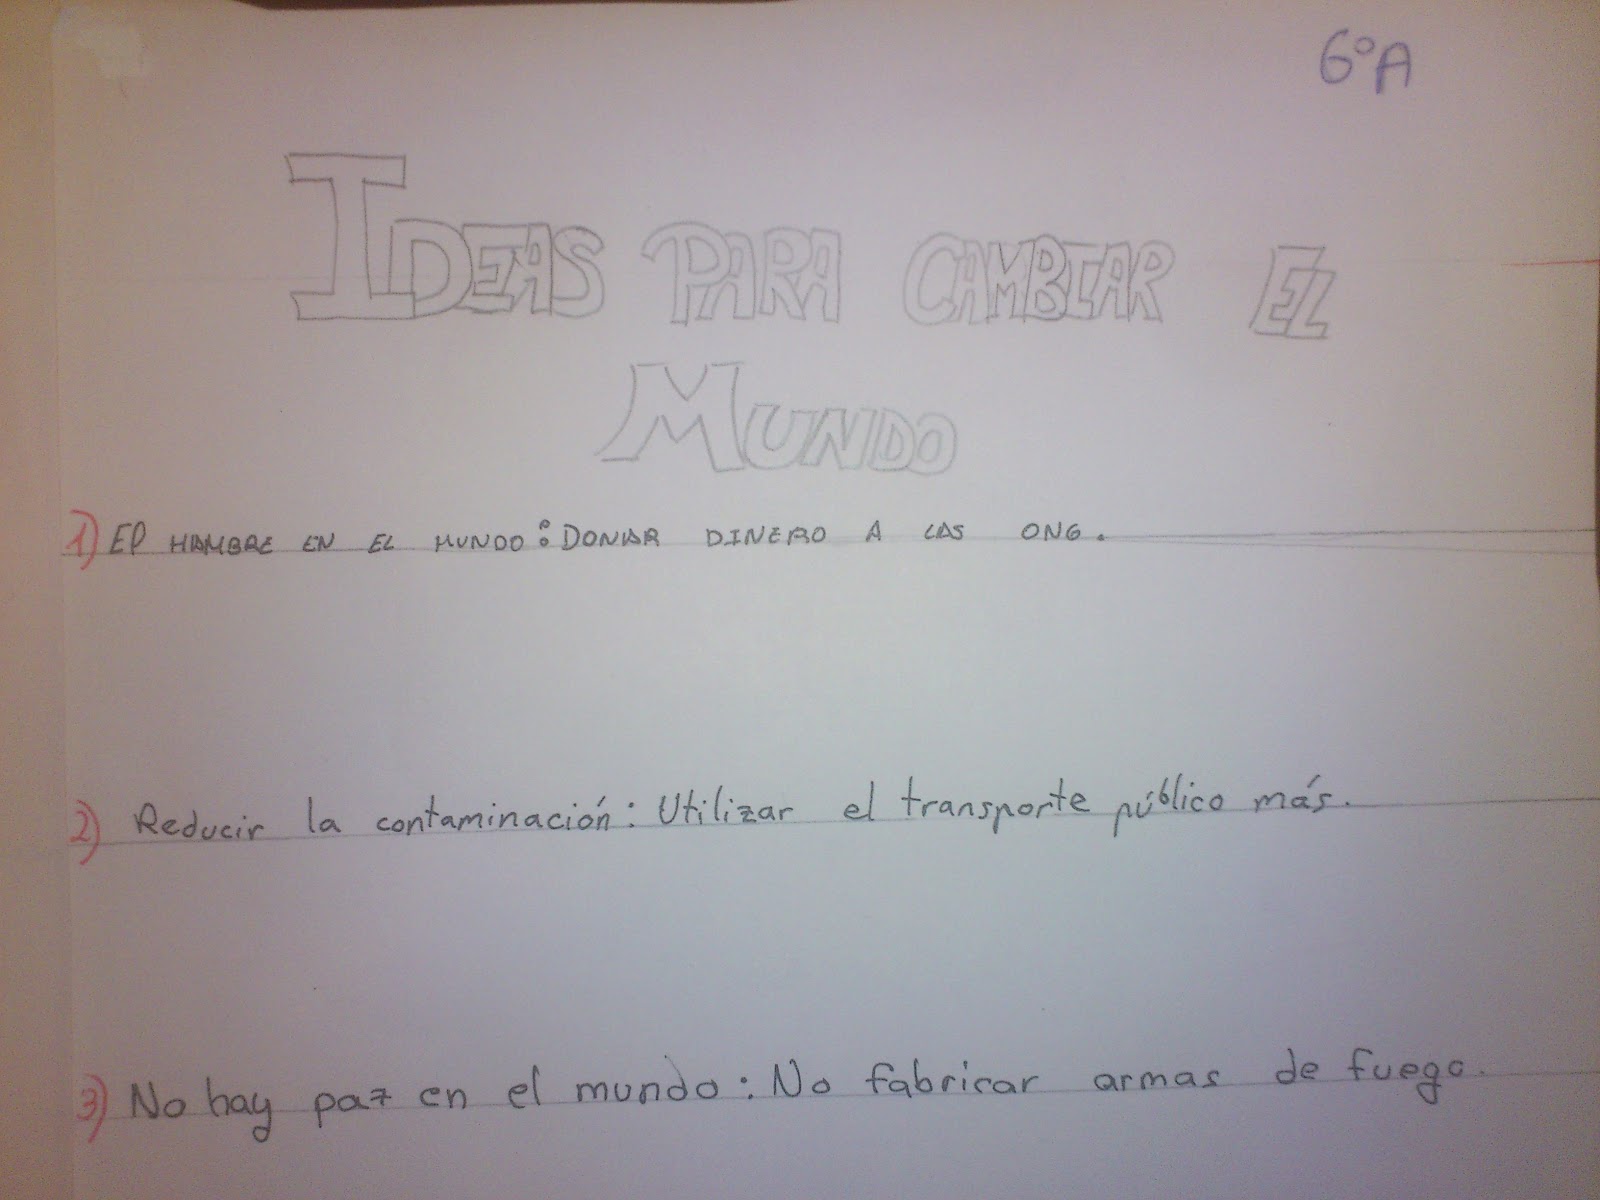 6ºA
IDEAS PARA CAMBIAR EL
MUNDO
1) El HAMBRE EN EL MUNDO: DONAR DINERO A LAS ONG.
2) Reducir la contaminación: Utilizar el transporte público más.
3) No hay paz en el mundo: No fabricar armas de fuego.